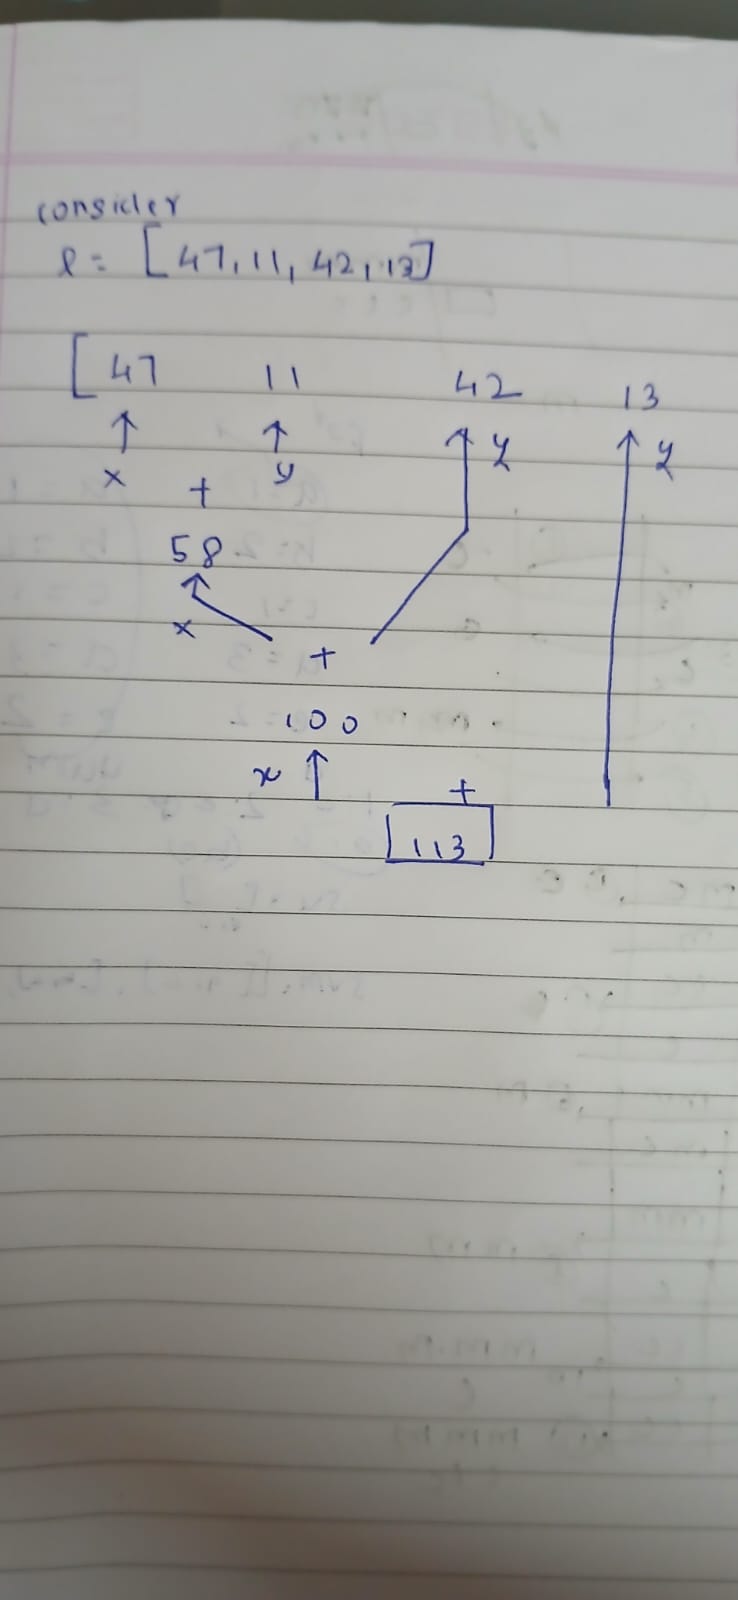 consider
l = [47, 11, 42, 13]
[ 47 11 42 13
x + y y y
58
x +
100
x +
113